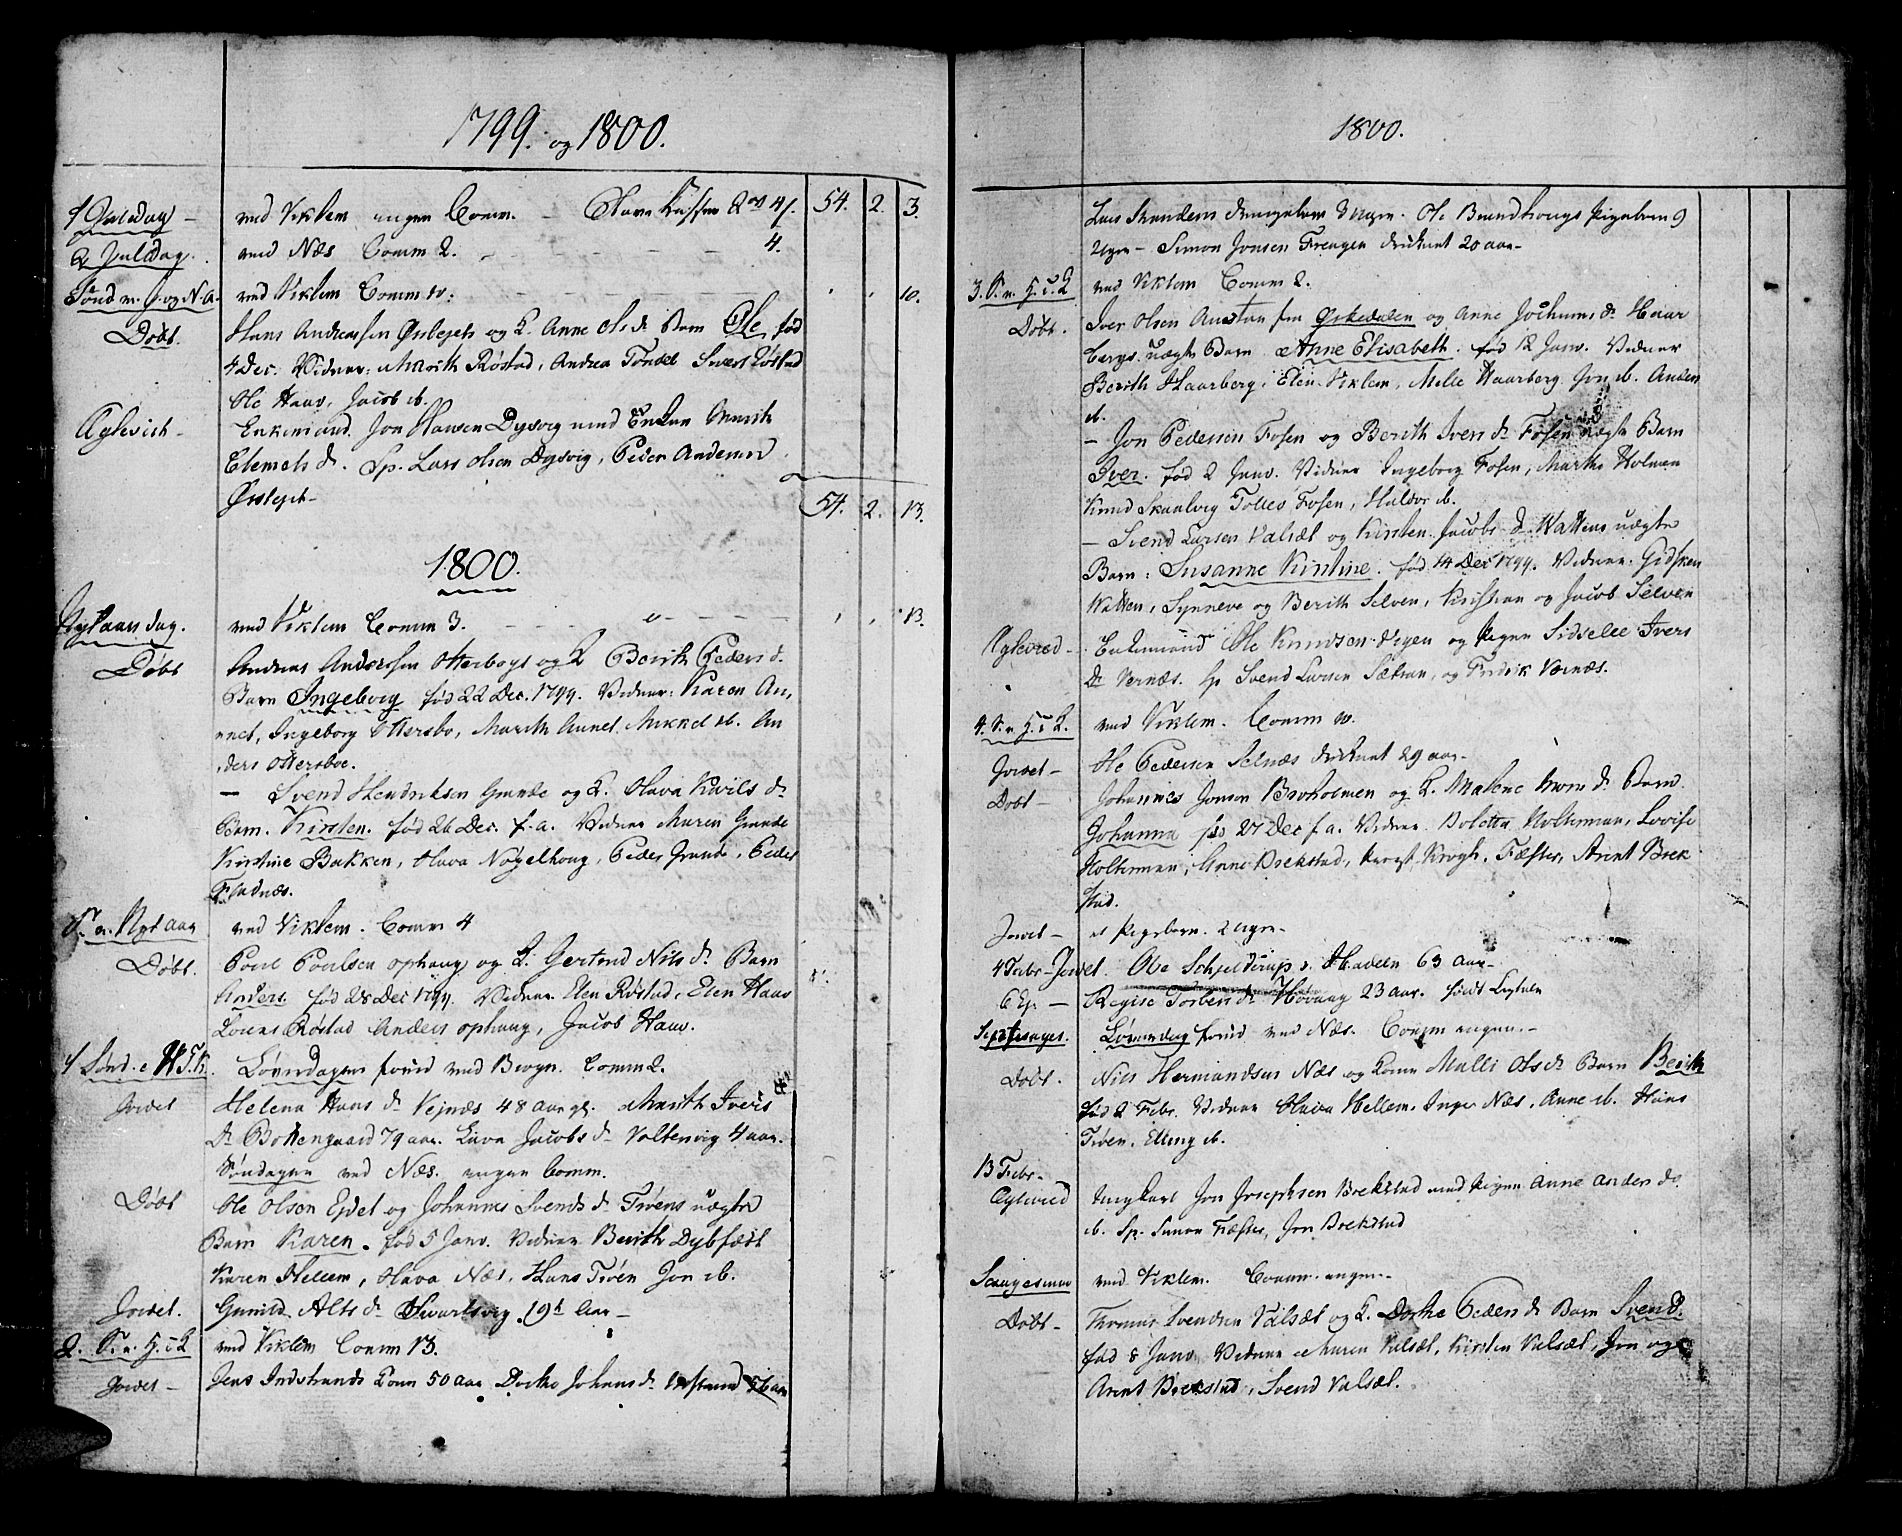 1799. og 1800.
1 Juledag - ved Viklem ingen Comm. - 54. 2. 3.
2 Juledag. ved Næs Comm 2. 4.
Sønd m. J. og N. a. ved Viklem Comm 10. 10.
Døbt. Hans Andersen Ørslejets og K. Anne Ols d. Barn Ole, fød
4 Dec. Vidner: Marith Røstad, Andrea Tøndel Røstad
Ole Haav, Jacob ib.
Ægteviet - Enkemand Jon Hansen Dysvig med Enken Marit
Clemets d. Sp. Lars Olsen Dysvig, Peder Andersen
Ørslejet - 54. 2. 13.
1800.
Nytaarsdag. ved Viklem Comm 3. 13.
Døbt Andreas Andersen Otterboys og K Berith Peders d.
Barn Ingeborg fød 22 Dec. 1799. Vidner: Karen An,
net, Ingeborg Ottersbo, Marith Aunet, Mikkel ib. An
ders Ottersboe.
- Svend Hendriksen Grande og K. Hava Kivils d.
Barn. Kirsten. fød 26 Dec. f. a. Vidner Maren Grande
Kirstine Bakken, Hava Nøgelhoug, Peder Grande, Peder
Fladnæs.
S. n. Nyt aar ved Viklem. Comm 4
Døbt. Poul Poulsen Ophaug og K. Gertrud Nils d. Barn
Anders fød 28 Dec 1799. Vidner Elen Røstad, Elen Haav
Lorens Røstad Anders Ophaug, Jacob Haav.
1 Sønd. e H.3.K. Løverdagen forud ved Bevgn. Comm 2.
Jordet Helena Hans d. Vejnæs 48 aar gl. Marith Ivers
D. Bottengaard 79 aar. Lava Jacobs d. Valtenvig 4 aar.
Søndagen ved Næs. ingen Comm.
Døbt Ole Olsen Ejdet og Johanna Svends d. Tiøens uægte
Barn Karen. fød 5 Janv. Vidner Berith Dybfæst
Karen Hellem, Hava Næs, Hans Tiøen Jon ib.
Jordet. Gunild Alts d. Svartsvig. 19 Aar -
2. S. n. H. 3 K ved Viklem Comm 13.
Jordet - Jens Indstrands Kone 50 aar Dorthe Johans d. 56 aar
1800.
Lars Strandens Drengebarn 3 Uger. Ole Brandhougs Pigebarn 9
Uger - Simon Jonsen Frengen druknet 20 aar -
3. S. n. H. 3. K ved Viklem Comm 2.
Døbt. Iver Olsen Austan fra Ørkedalen og Anne Jochums d. Haar
bergs uægte Barn Anne Elisabeth. fød 12 Janv. Vidner
Berith Haarberg, Elen Viklem, Malie Haarberg Jon ib. Anders
ib.
- Jon Pedersen Fosen og Berith Ivers d. Fosen uægte Barn
Iver. fød 2 Janv. Vidner Ingeborg Fosen, Marthe Holmen
Knud Skaalvig Tolles Fosen, Haldor ib.
- Svend Larsen Valsæt og Kirsten Jacobs d. Wattens uægte
Barn: Susanne Kirstine. fød 14 Dec 1799. Vidner. Gidsken
Watten, Synneve og Berith Selven, Kristian og Jacob Selven
Ægteviet - Enkemand Ole Knudsen og Pigen Sidselle Ivers
D. Vernæs. Sp Svend Larsen Sætran, og Fredrik Værnæs.
4. S. n. H. 3 K. ved Viklem. Comm 10.
Jordet - Ole Pedersen Selnæs druknet 29 aar -
Døbt - Johannes Jonsen Broholmen og K. Malene d. Barn
Johanna fød 27 Dec f. a. Vidner Boletta Holterman, Lovise
Holterman, Anne Brekstad, Provst Krogh, Fæster, Arent Brek
stad.
Jordet - et Pigebarn. 2 Uger -
4 Febr - Jordet. Ole Schjelderup s. Havden 63 aar -
6 Ej - Regise Torbers d. Høvaag 23 aar.
Septuages. Løverdag forud ved Næs. Comm ingen. -
Døbt. Nils Hermandsen Næs og Kone Malli Ols d. Barn Berith
fød 2 Febr. Vidner Hava Hellem. Inger Næs, Anne ib. Hans
Tiøen, Elling ib.
13 Febr -
Ægteviet Ungkarl Jon Josephsen Brekstad med Pigen Anne Anders d.
ib. Sp. Simon Fæster, Jon Brekstad
Sexagesima ved Viklem. Comm. ingen -
Døbt - Thomas Svendsen Valsæt og K. Dorthe Peders d. Barn Svend.
fød 8 Janv Vidner Maren Valsæt, Kirsten Valsæt, Jon og
Arent Brekstad, Svend Valsæt.